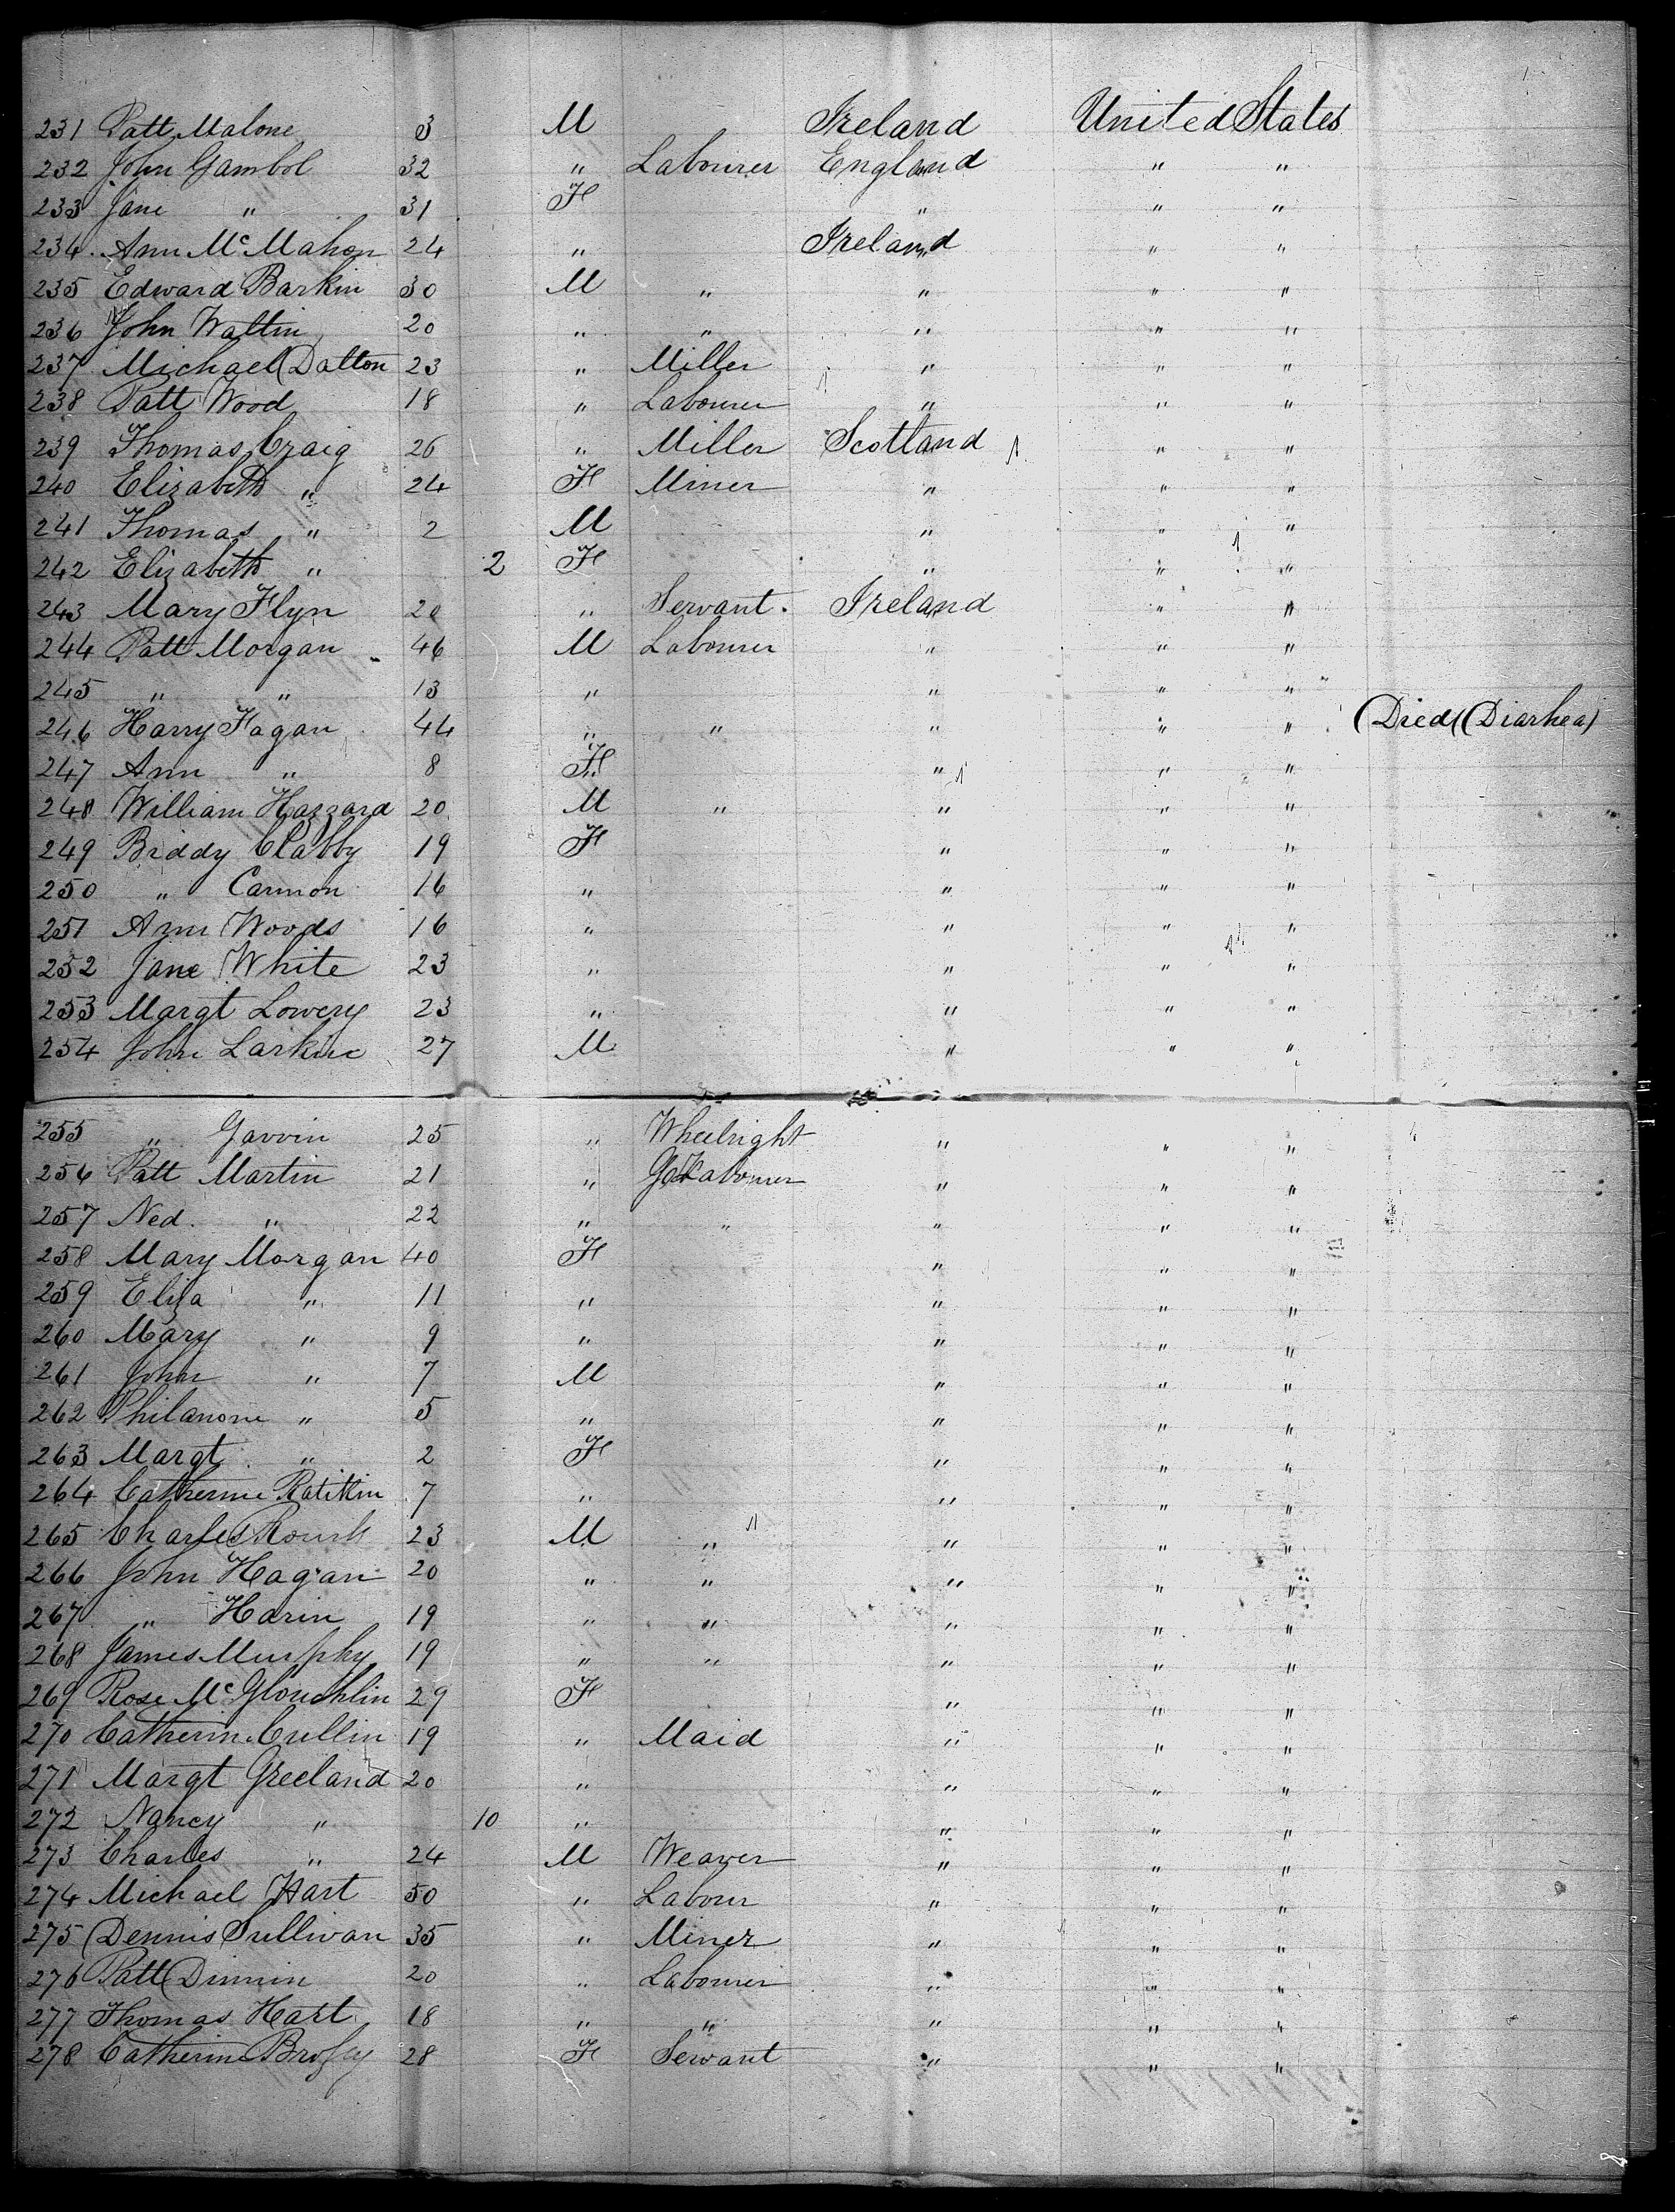 231 Patt Malone 3 M Ireland United States
232 John Gambol 32 " Labourer England " "
233 Jane " 31 F " " "
234 Ann McMahon 24 " Ireland " "
235 Edward Barkin 30 M " " " "
236 John Waltin 20 " " " " "
237 Michael Dalton 23 " Miller " " "
238 Patt Wood 18 " Labourer " " "
239 Thomas Craig 26 " Miller Scotland " "
240 Elizabeth " 24 F Miner " " "
241 Thomas " 2 M " " "
242 Elizabeth " 2 F " " "
243 Mary Flyn 20 " Servant. Ireland " "
244 Patt Morgan 46 M Labourer " " "
245 " " 13 " " " "
246 Harry Fagan 44 " " " " " Died (Diarhea)
247 Ann " 8 F " " "
248 William Hazzard 20 M " " " "
249 Briddy Clabby 19 F " " "
250 " Cannon 16 " " " "
251 Ann Woods 16 " " " "
252 Jane White 23 " " " "
253 Margt Lowery 23 " " " "
254 John Larkin 27 M " " "
255 " Gavvin 25 " Wheelright " " "
256 Patt Martin 21 " Labourer " " "
257 Ned. " 22 " " " " "
258 Mary Morgan 40 F " " "
259 Eliza " 11 " " " "
260 Mary " 9 " " " "
261 John " 7 M " " "
262 Philanone " 5 " " " "
263 Margt " 2 F " " "
264 Catherine 7 " " " "
265 Charles Rourk 23 M " " " "
266 John Hagan 20 " " " " "
267 " Harin 19 " " " " "
268 James Murphy 19 " " " " "
269 Rose McGloughlin 29 F " " "
270 Catherin Cullin 19 " Maid " " "
271 Margt Greeland 20 " " " "
272 Nancy " 10 " " " "
273 Charles " 24 M Weaver " " "
274 Michael Hart 50 " Labour " " "
275 Dennis Sullivan 35 " Miner " " "
276 Patt Dinnin 20 " Labourer " " "
277 Thomas Hart 18 " " " " "
278 Catherine Brofy 28 F Servant " " "